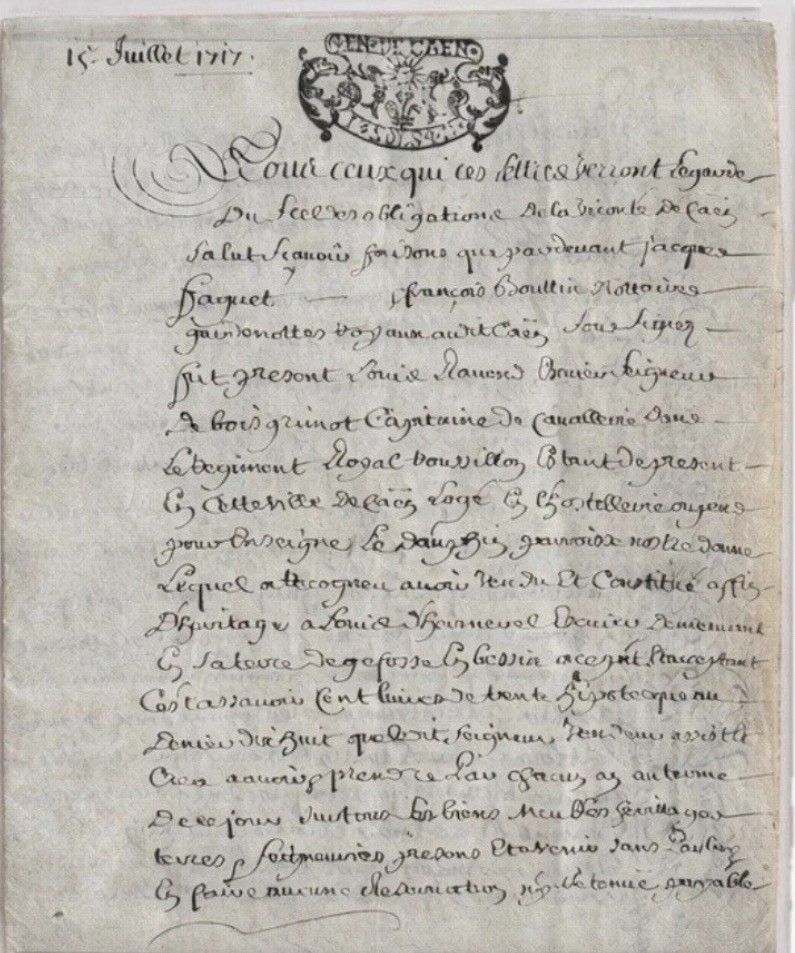 15. Juillet 1717.
GEN. DE CAEN
SOLS
Pour ceux qui ces lettres verront le garde
Du Scel des obligations De la viconté de Caën
Salut scauoir faisons que pardeuant Jacques
faguet françois Boullin Nottaires
gardenottes Royaux audit Caën soussignez
fut present Louis Escuier seigneur
De bois grimot Capitaine de Cauallerie dans
Le Regiment Royal Estant de present
En Cette ville De Caën Logé En L'hostellerie ayant
pour Enseigne Le Dauphin parroisse nostre dame
Lequel a Recogneu auoir vendu Et Constitué affin
D'heritage a Louis d'harneuel Escuier Demeurant
En sa terre De gefosse En bessin a ce pñt Et acceptant
Cest assauoir Cent liures de rente hipotecque au
Denier dix huit que ledit seigneur vendeur
Créé a auoir prendre Par chacun an au terme
De ce jour sur tous ses biens Meubles heritages
terres seigneuries presens Et avenir sans
En faire aucune ny Retenüe payable